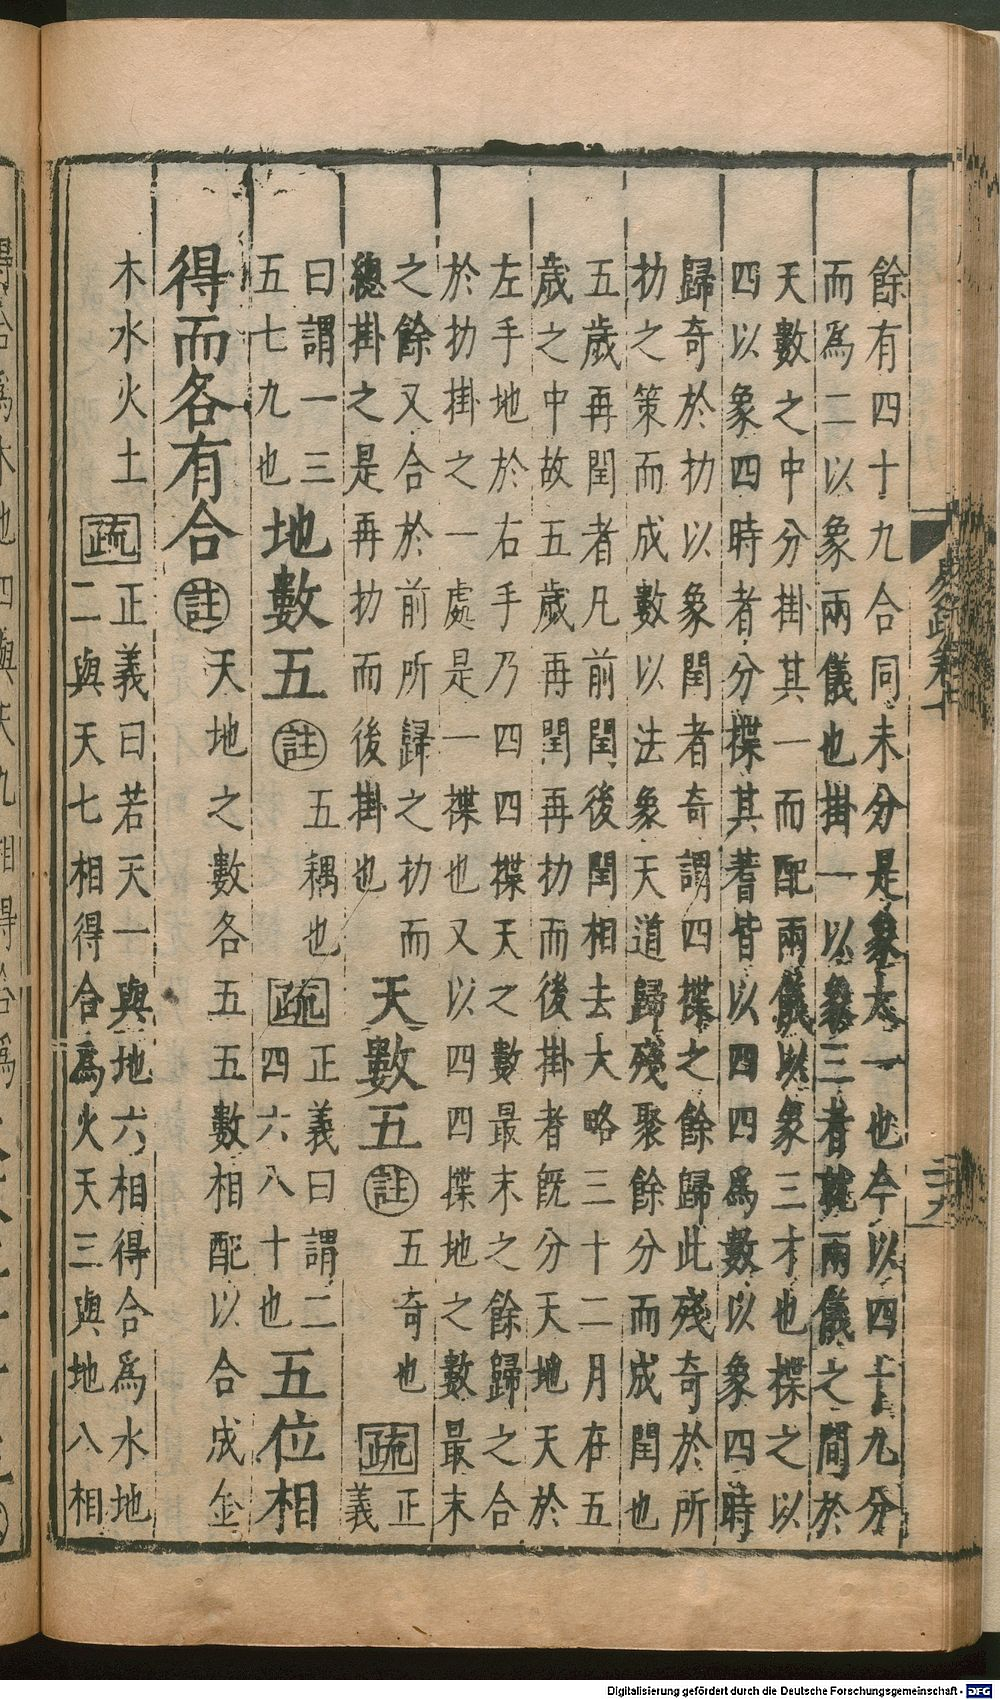 餘有四十九合同未分是象太一也今以四十九分
而爲二以象兩儀也掛一以象三者就兩儀之間於
天數之中分掛其一而配兩儀以象三才也揲之以
四以象四時者分揲其蓍皆以四四爲數以象四時
歸奇於扐以象閏者奇謂四揲之餘歸此殘奇於所
扐之策而成數以法象天道歸殘聚餘分而成閏也
五歲再閏者凡前閏後閏相去大略三十二月在五
歲之中故五歲再閏再扐而後掛者既分天地天於
左手地於右手乃四四揲天之數最末之餘歸之合
於扐掛之一處是一揲也又以四四揲地之數最末
之餘又合於前所歸之扐而
總掛之是再扐而後掛也
天數五
註
五奇也
疏
正
義
曰謂一三
五七九也
地數五
註
五耦也
疏
正義曰謂二
四六八十也
五位相
得而各有合
註
天地之數各五五數相配以合成金
木水火土
疏
正義曰若天一與地六相得合爲水地
二與天七相得合爲火天三與地八相
Digitalisierung gefördert durch die Deutsche Forschungsgemeinschaft - DFG